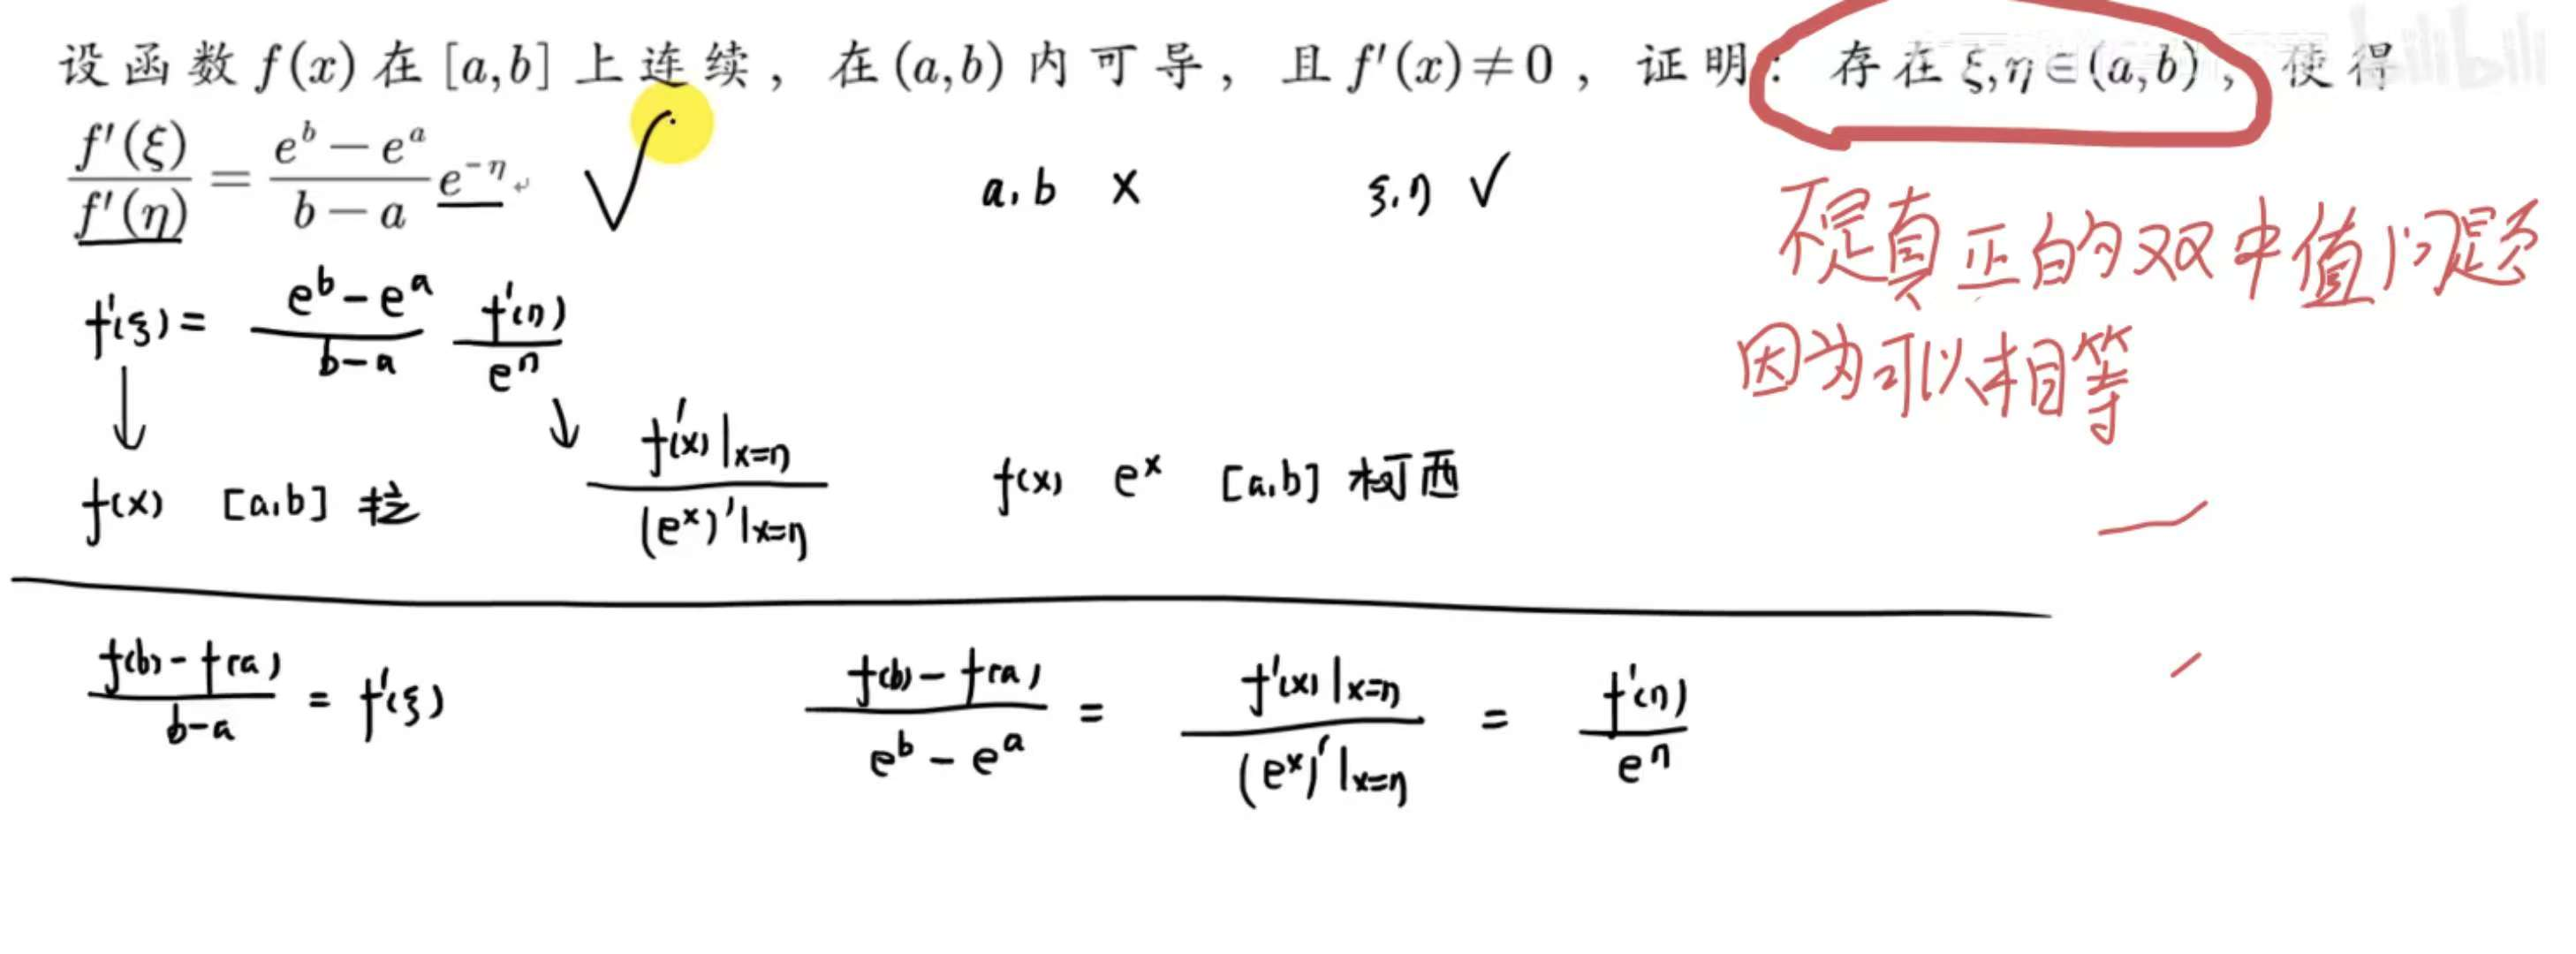 设函数 f(x) 在 [a,b] 上连续，在 (a,b) 内可导，且 f′(x)≠0，证明：存在 ξ,η∈(a,b)，使得
f′(ξ)/f′(η) = (e^b − e^a)/(b − a) e^{−η}
a,b × ξ,η √
不是真正的双中值问题
因为可以相等
f′(ξ) = (e^b − e^a)/(b − a) f′(η)/e^η
f(x) [a,b] 拉
f′(x)|x=η / (e^x)′|x=η
f(x) e^x [a,b] 柯西
(f(b) − f(a))/(b − a) = f′(ξ)
(f(b) − f(a))/(e^b − e^a) = f′(x)|x=η / (e^x)′|x=η = f′(η)/e^η
bilibili